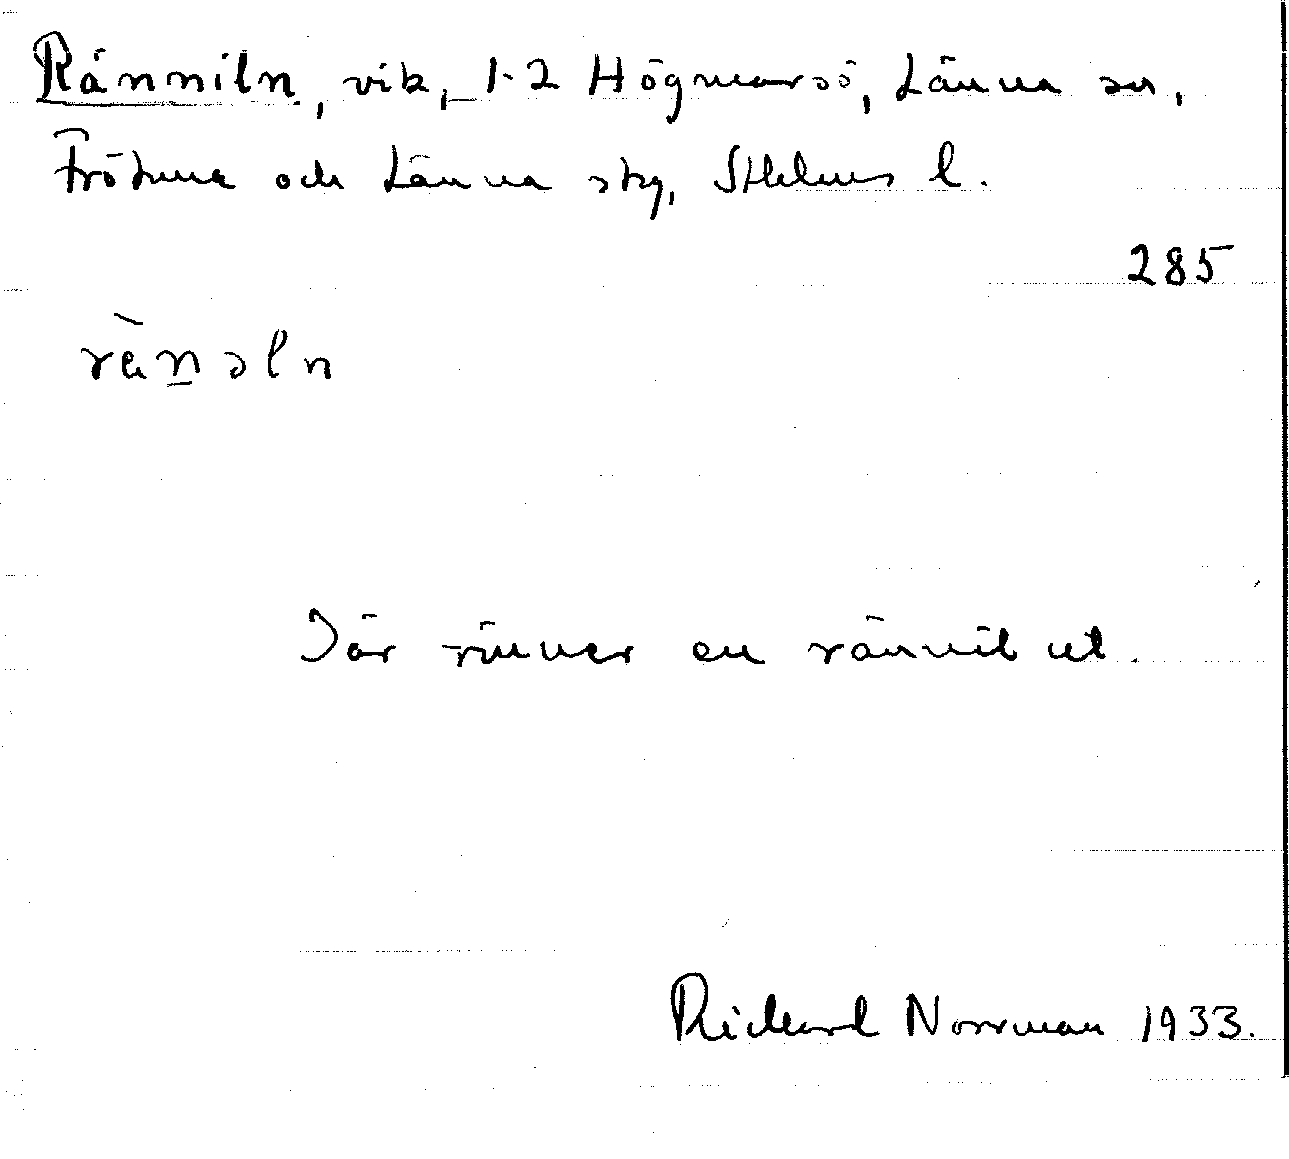 Ränniln, vik, 1-2 Högmarsö, Länna sn,
Frötuna och Länna skg, Sthlms l.
285
rän̲əln
Där rinner en rännil ut.
Rickard Norrman 1933.